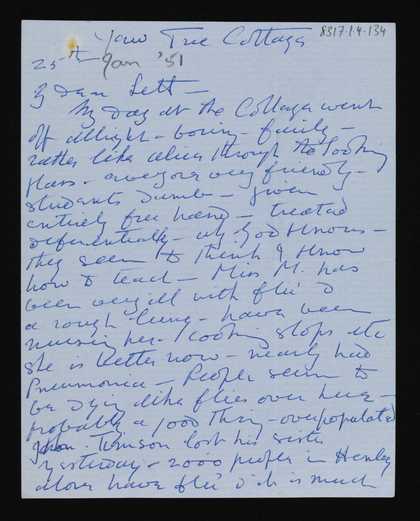 Yew Tree Cottage
8317.1.4.134
25th Jan '51
My Dear Sett -
My Day at the Cottage went
off allright - boring - fairly -
rather like alice through the looking
Glass - everyone very friendly -
students Dumb - given
entirely free hand - treated
Deferentially - my God Knows -
they seem to think I Know
how to teach - Miss M. has
been very ill with flu' &
a rough time - have been
nursing her - cooking slops etc
she is better now - nearly had
Pneumonia - People seem to
be Dying like flies over here -
probably a good thing - overpopulated
Tomson lost his sister
yesterday - 2000 people in Henley
alone have flu' & it is much